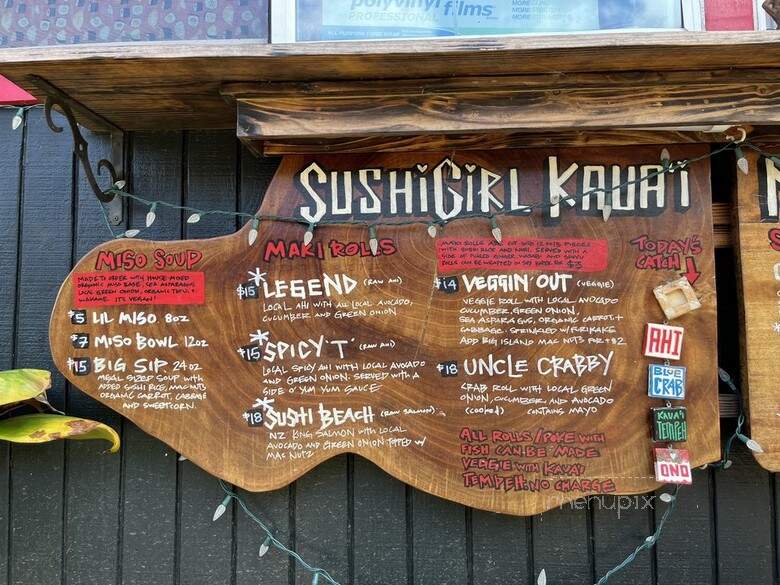 polyvinyl films
PROFESSIONAL
SUSHiGiRL KAUAi
MISO SOUP
MADE TO ORDER WITH HOUSE MIXED
ORGANIC MISO BASE, SEA ASPARAGUS
LOCAL GREEN ONION, ORGANIC TOFU, +
WAKAME. IT'S VEGAN!
$5 LIL MISO 8oz
$7 MISO BOWL 12oz
$15 BIG SIP 24oz
MEAL SIZED SOUP WITH
ADDED SUSHI RICE, MAC NUTS
ORGANIC CARROT, CABBAGE
AND SWEETCORN.
MAKI ROLLS
$15 *LEGEND (RAW AHI)
LOCAL AHI WITH ALL LOCAL AVOCADO,
CUCUMBER AND GREEN ONION
$15 *SPICY 'T' (RAW AHI)
LOCAL SPICY AHI WITH LOCAL AVOCADO
AND GREEN ONION. SERVED WITH A
SIDE O' YUM YUM SAUCE
$18 *SUSHI BEACH (RAW SALMON)
NZ KING SALMON WITH LOCAL
AVOCADO AND GREEN ONION TOPPED W/
MAC NUTZ
MAKI ROLLS ARE CUT INTO 12 MINI PIECES
WITH SUSHI RICE AND NORI. SERVED WITH A
SIDE OF PICKLED GINGER, WASABI AND SHOYU
ROLLS CAN BE WRAPPED IN SOY PAPER FOR $3
$14 VEGGIN' OUT (VEGGIE)
VEGGIE ROLL WITH LOCAL AVOCADO
CUCUMBER, GREEN ONION,
SEA ASPARAGUS, ORGANIC CARROT, +
CABBAGE. SPRINKLED W/ FURIKAKE
ADD BIG ISLAND MAC NUTS FOR +$2
$18 UNCLE CRABBY
CRAB ROLL WITH LOCAL GREEN
ONION, CUCUMBER, AND AVOCADO
(COOKED) CONTAINS MAYO
ALL ROLLS/POKE WITH
FISH CAN BE MADE
VEGGIE WITH KAUAI
TEMPEH: NO CHARGE
TODAY'S
CATCH
AHI
BLUE
CRAB
KAUA'I
TEMPEH
ONO
menupix